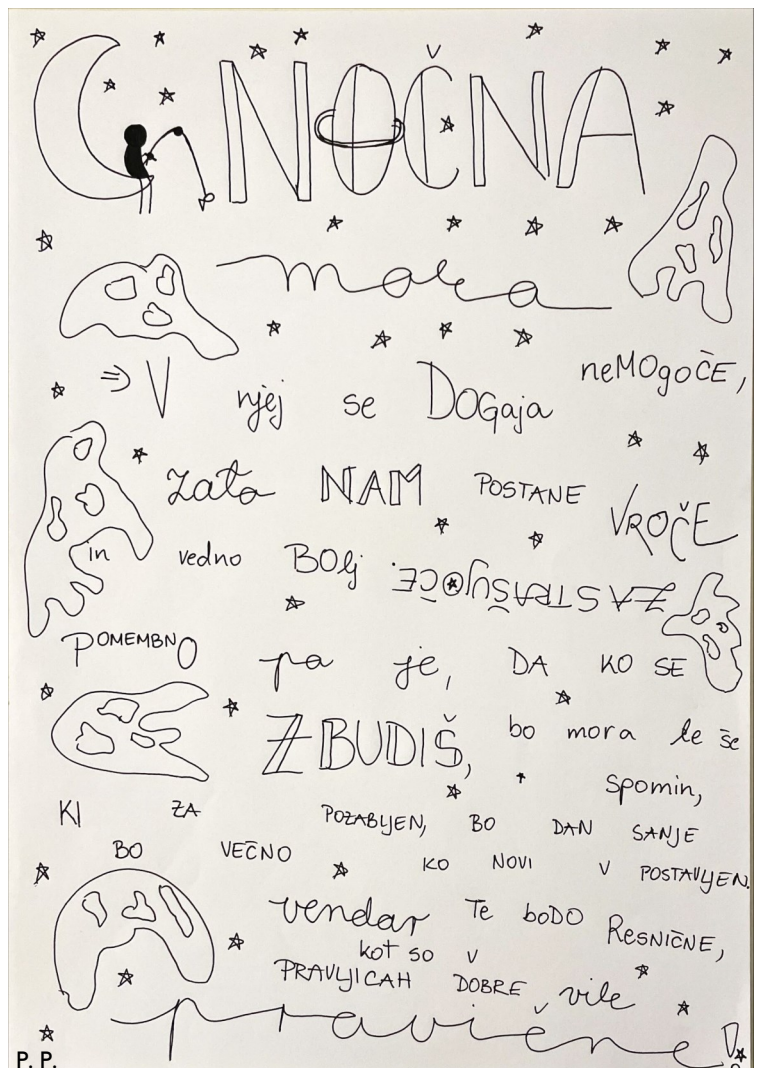 NOČNA
mora
⇒ V njej se DOGaja neMOgoČE,
zato NAM POSTANE VROČE
in vedno BOlj ZASTRAŠUJOČE.
POMEMBNO pa je, DA KO SE
ZBUDIŠ, bo mora le še
spomin,
KI ZA POZABLJEN, BO DAN SANJE
BO VEČNO KO NOVI V POSTAVLJEN.
vendar Te boDO ResNIČNE,
kot so v
PRAVLJICAH DOBRE vile
pravične!
P. P.